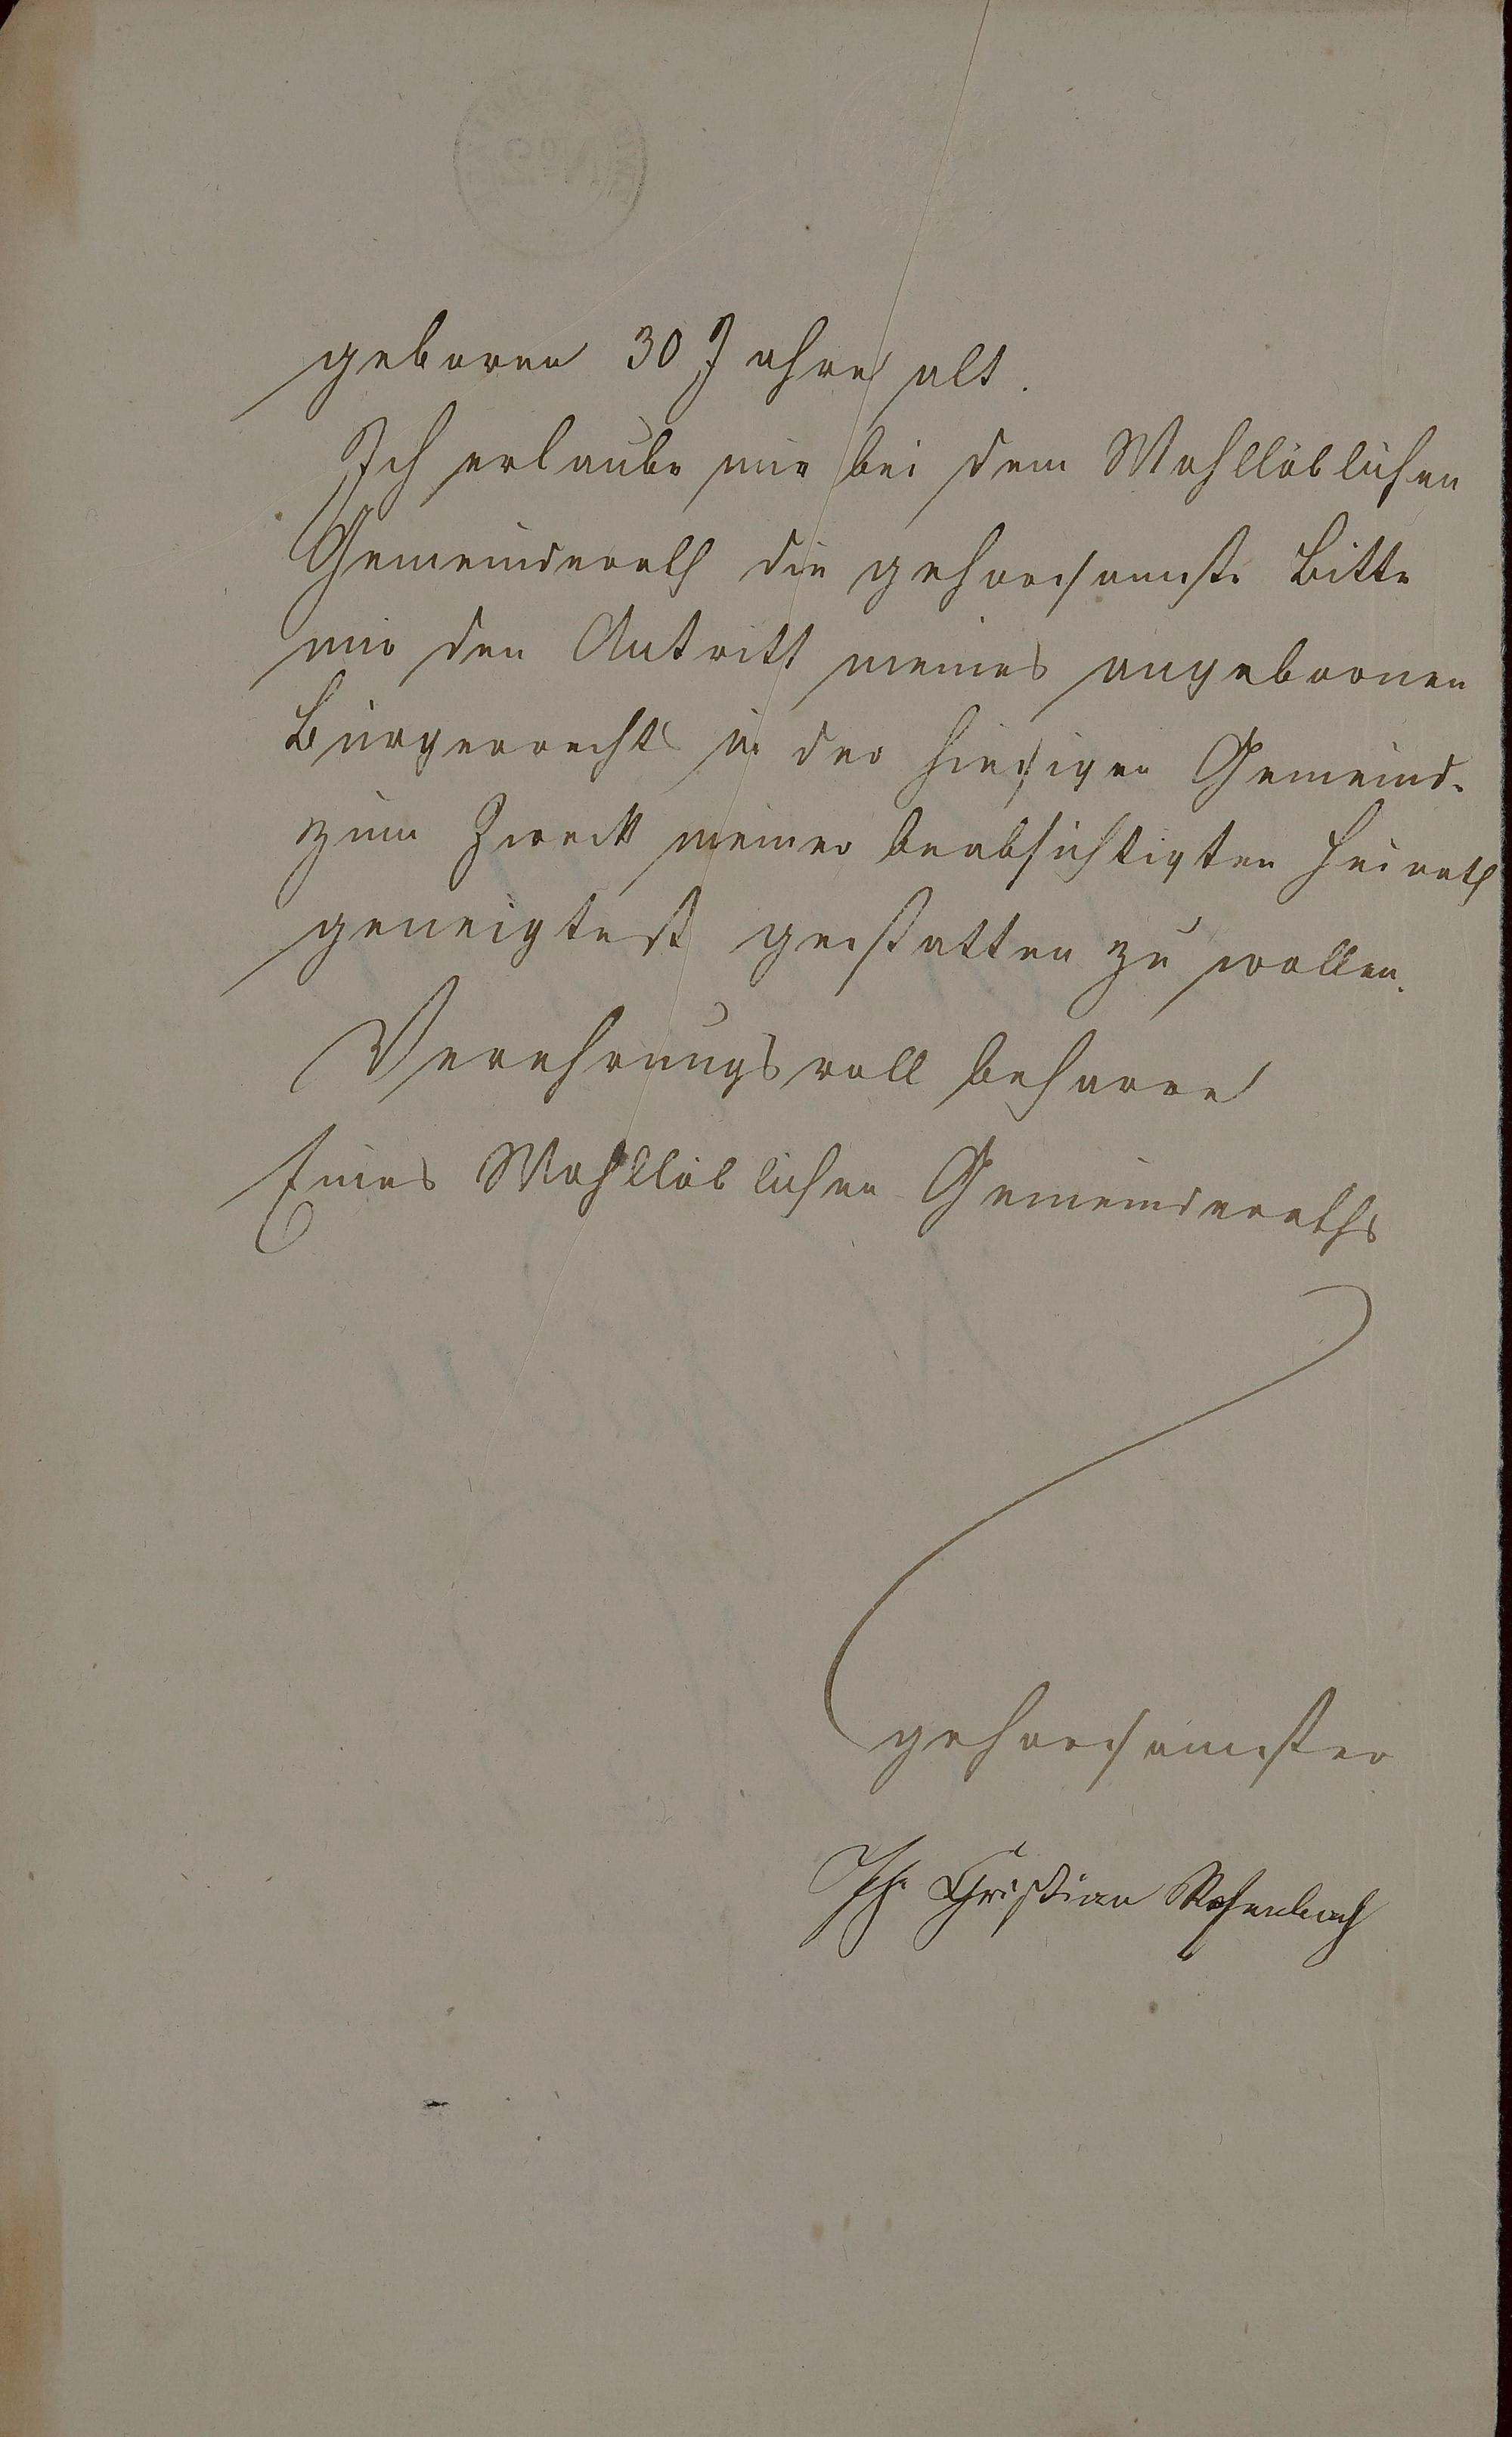 geboren 30 Jahre alt.
Ich erlaube mir bei dem Wohllöblichen
Gemeinderath die gehorsamste Bitte
mir den Antritt meines angebornen
Bürgerrechts in der hiesigen Gemeinde
zum Zweck meiner beabsichtigten Heirath
geneigtest gestatten zu wollen.
Verehrungsvoll beharre
Eines Wohllöblichen Gemeinderaths
gehorsamster
Christian Rosenbach